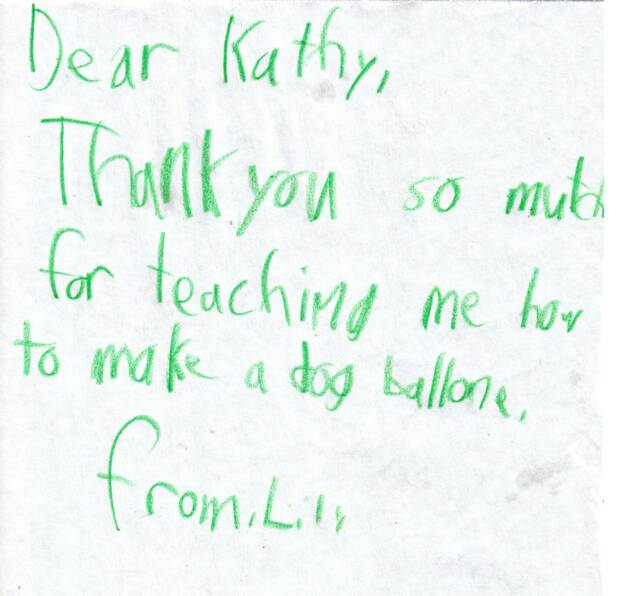 Dear Kathy,
Thank you so mutch
for teaching me how
to make a dog ballone.
from, Lily